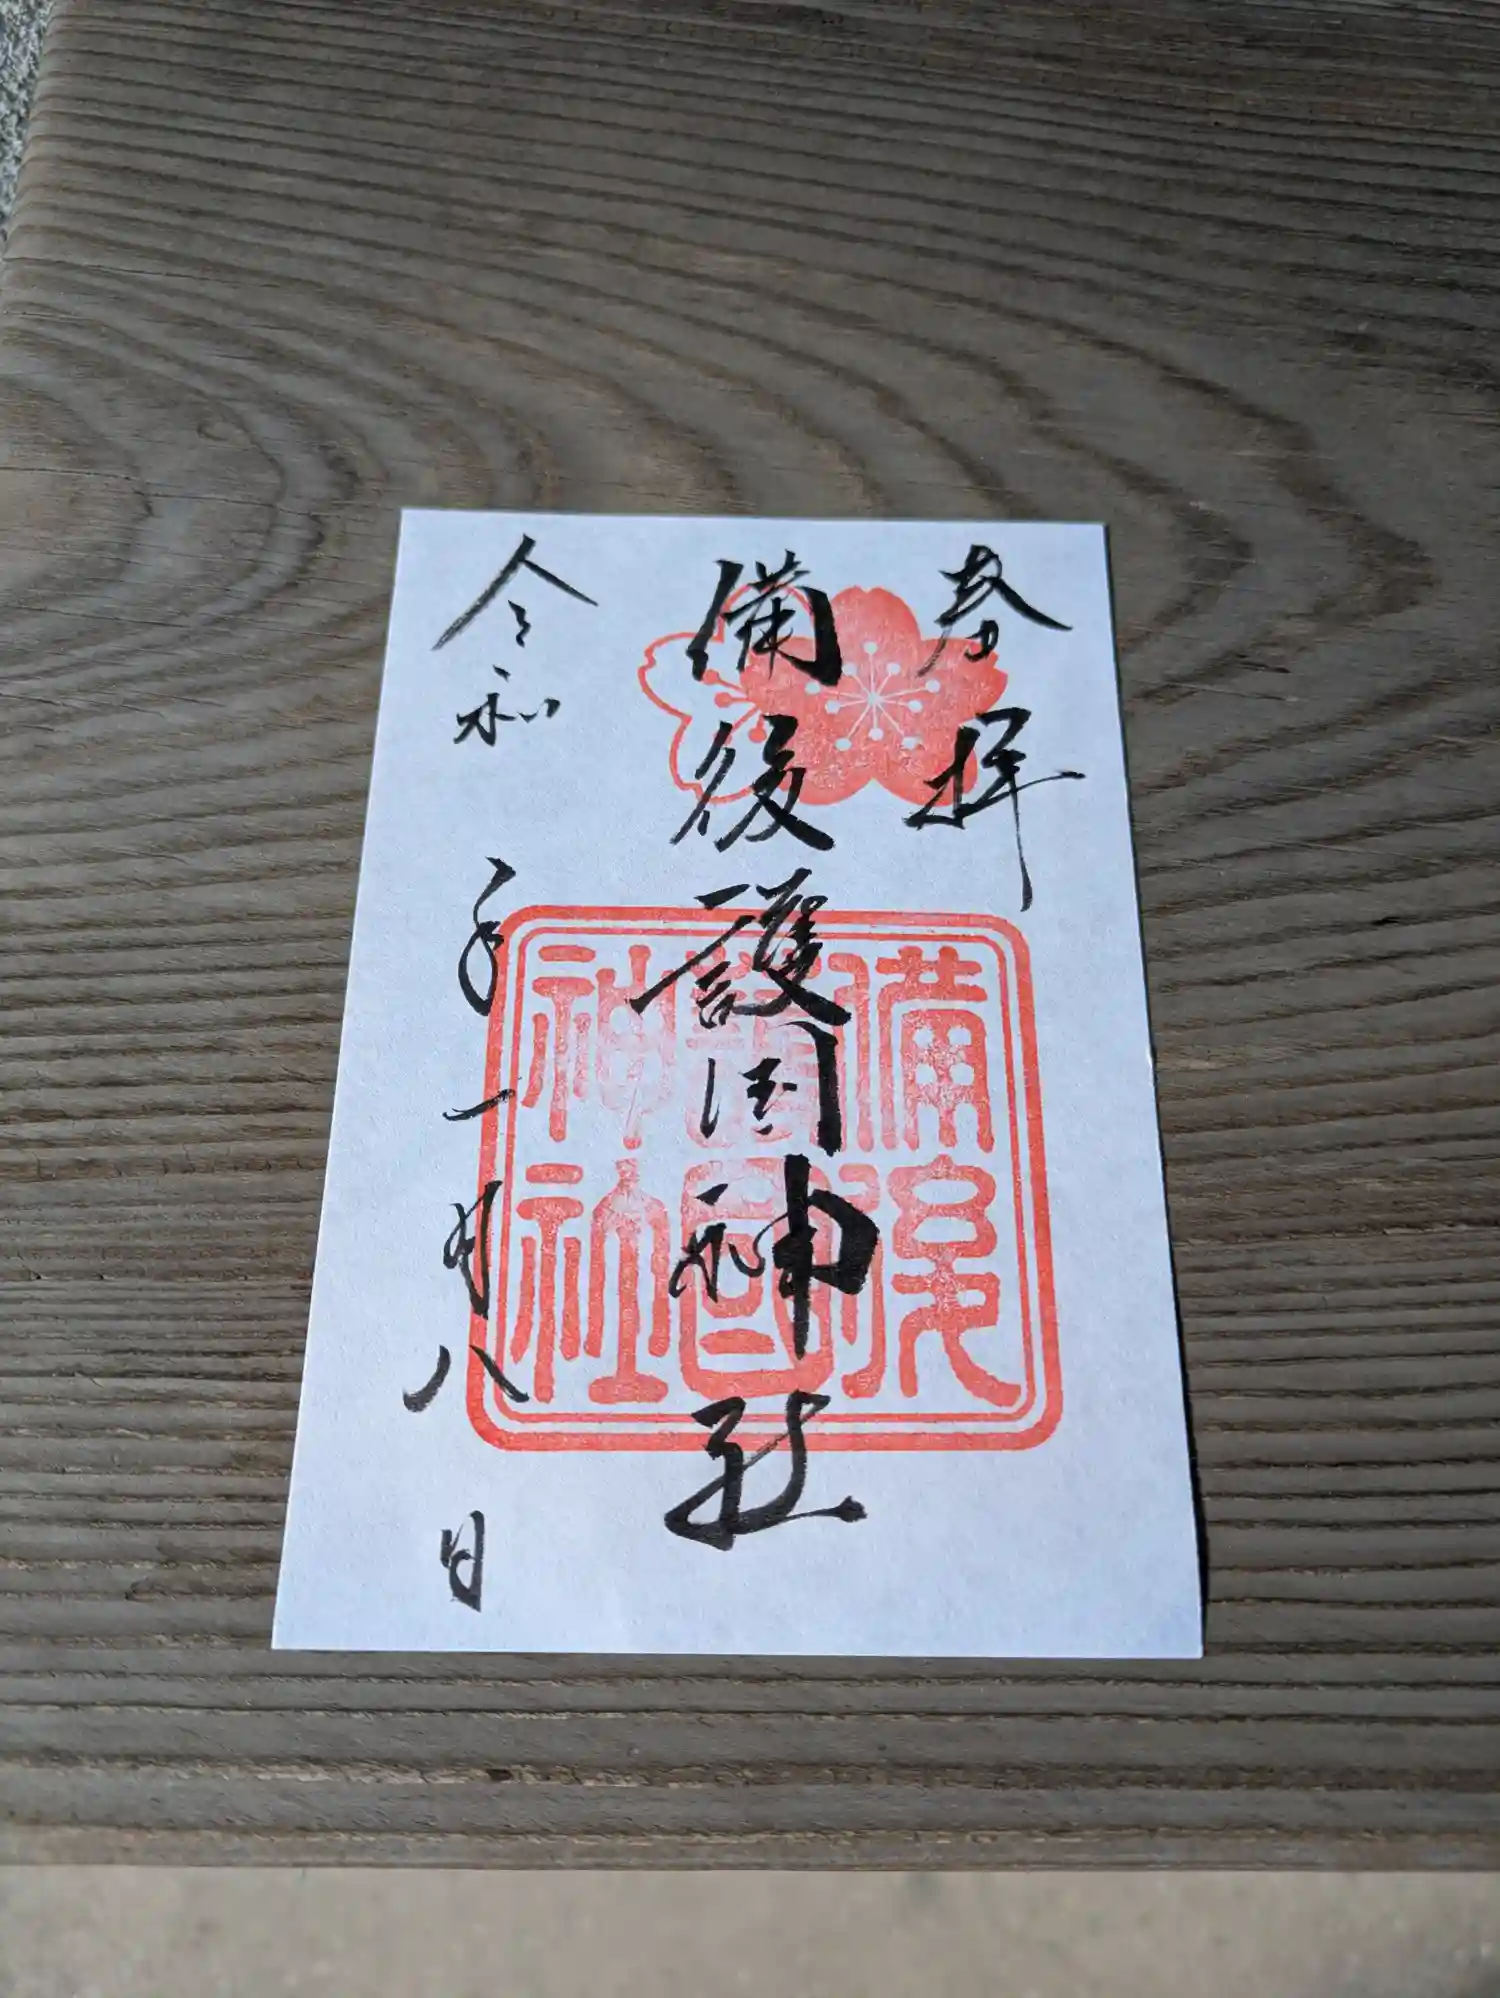 奉拝
備後護国神社
令和 年一月八日
備後
護國
神社